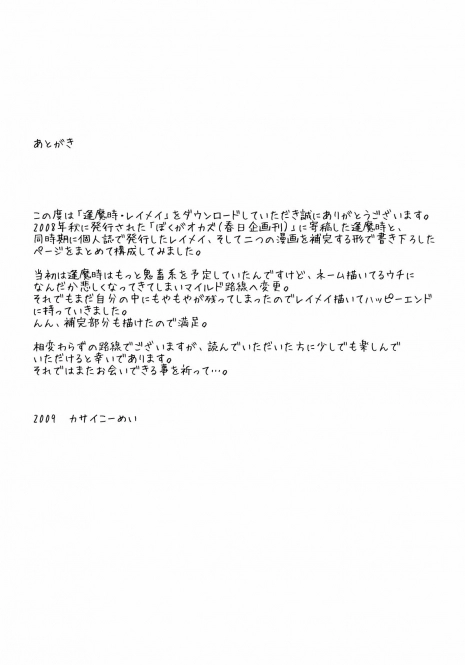 あとがき
この度は「逢魔時・レイメイ」をダウンロードしていただき誠にありがとうございます。
2008年秋に発行された「ぼくがオカズ(春日企画刊)」に寄稿した逢魔時と、
同時期に個人誌で発行したレイメイ、そして二つの漫画を補完する形で書き下ろした
ページをまとめて構成してみました。
当初は逢魔時はもっと鬼畜系を予定していたんですけど、ネーム描いてるウチに
なんだか悲しくなってきてしまいマイルド路線へ変更。
それでもまだ自分の中にもやもやが残ってしまったのでレイメイ描いてハッピーエンド
に持っていきました。
んん、補完部分も描けたので満足。
相変わらずの路線でございますが、読んでいただいた方に少しでも楽しんで
いただけると幸いであります。
それではまたお会いできる事を祈って…。
2009 カサイこーめい